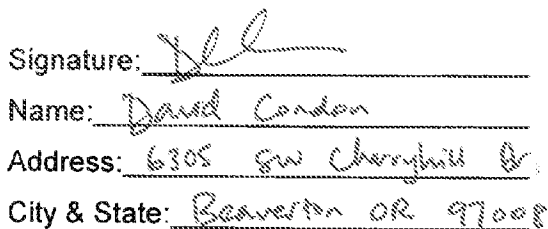 Signature:
Name: David Condon
Address: 6305 SW Cherryhill Dr.
City & State: Beaverton OR 97008